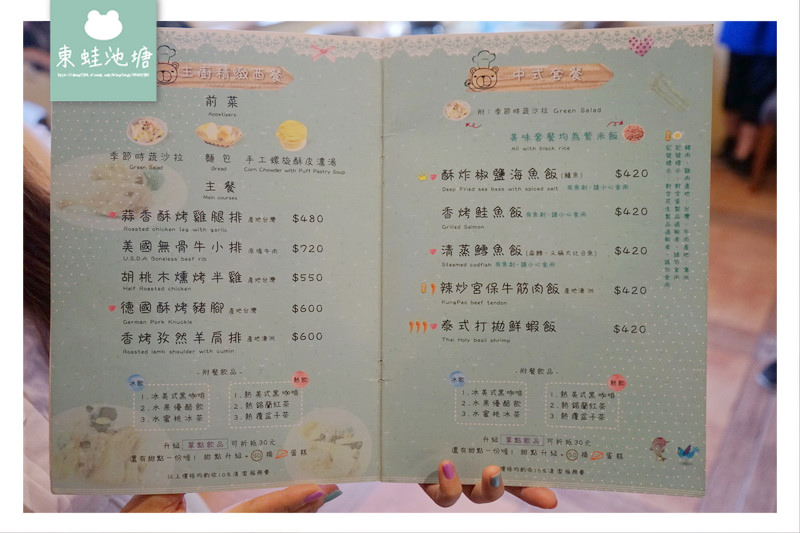 東蛙池塘
主廚精緻西餐
前菜
Appetisers
季節時蔬沙拉 麵包 手工螺旋酥皮濃湯
Green Salad Bread Corn Chowder with Puff Pastry Soup
主餐
Main courses
蒜香酥烤雞腿排 產地台灣 $480
Roasted chicken leg with garlic
美國無骨牛小排 $720
U.S.D.A Boneless beef rib
胡桃木燻烤半雞 產地台灣 $550
Half Roasted chicken
德國酥烤豬腳 產地台灣 $600
German Pork Knuckle
香烤孜然羊肩排 產地澳洲 $600
Roasted lamb shoulder with cumin
-附餐飲品-
冰飲 熱飲
1.冰美式黑咖啡 1.熱美式黑咖啡
2.水果優酪飲 2.熱錫蘭紅茶
3.水蜜桃冰茶 3.熱覆盆子茶
升級 單點飲品 可折抵30元
還有甜點一份唷! 甜點升級+50換 蛋糕
以上價格均酌收10%清潔服務費
中式套餐
附:季節時蔬沙拉 Green Salad
美味套餐均為紫米飯
All with black rice
酥炸椒鹽海魚飯(鱸魚) $420
Deep Fried sea bass with spiced salt 有魚刺,請小心食用
香烤鮭魚飯 有魚刺,請小心食用 $420
Grilled Salmon
清蒸鱈魚飯 $420
Steamed codfish 有魚刺,請小心食用
辣炒宮保牛筋肉飯 產地澳洲 $420
KungPao beef tendon
泰式打拋鮮蝦飯 $420
Thai Holy basil shrimp
-附餐飲品-
冰飲 熱飲
1.冰美式黑咖啡 1.熱美式黑咖啡
2.水果優酪飲 2.熱錫蘭紅茶
3.水蜜桃冰茶 3.熱覆盆子茶
升級 單點飲品 可折抵30元
還有甜點一份唷! 甜點升級+50換 蛋糕
以上價格均酌收10%清潔服務費